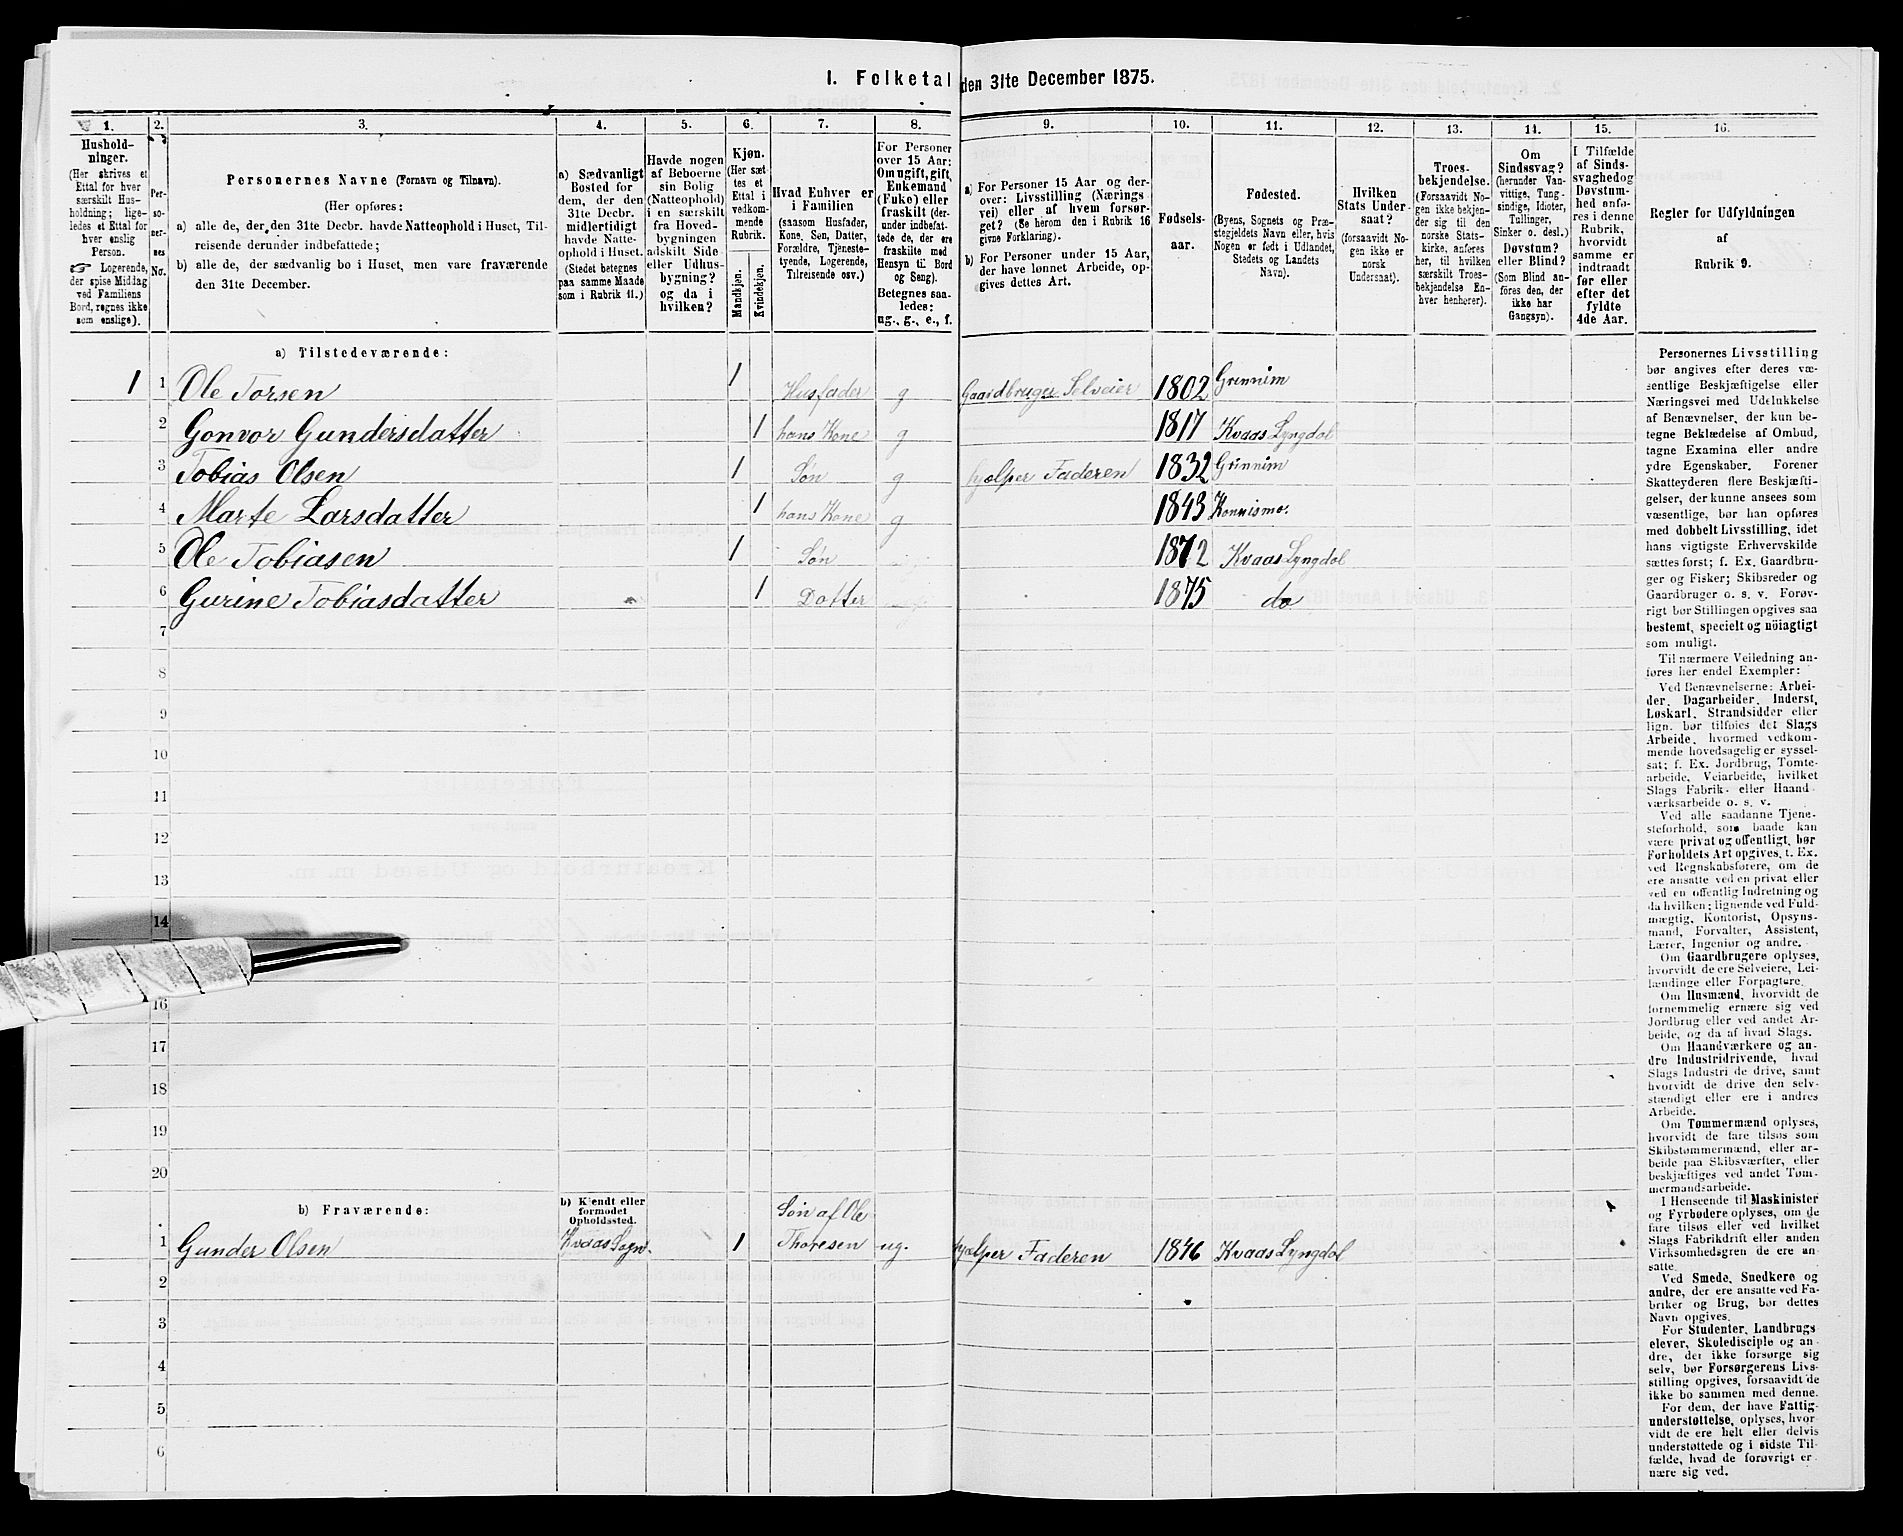 I. Folketal den 31te December 1875.
1.
Hushold-
ninger.
(Her skrives et
Ettal for hver
særskilt Hus-
holdning; lige-
ledes et Ettal for
hver enslig
Person.
☞ Logerende,
der spise Middag
ved Familiens
Bord, regnes ikke
som enslige).
2.
Per-
so-
ner-
nes
No.
3.
Personernes Navne (Fornavn og Tilnavn).
(Her opføres:
a) alle de, der den 31te Decbr. havde Natteophold i Huset, Til-
reisende derunder indbefattede;
b) alle de, der sædvanlig bo i Huset, men vare fraværende
den 31te December.
4.
a) Sædvanligt
Bosted for
dem, der den
31te Decbr.
midlertidigt
havde Natte-
ophold i Huset.
(Stedet betegnes
paa samme Maade
som i Rubrik 11.)
5.
Havde nogen
af Beboerne
sin Bolig
(Natteophold)
i en særskilt
fra Hoved-
bygningen
adskilt Side-
eller Udhus-
bygning?
og da i
hvilken?
6.
Kjøn.
(Her sæt-
tes et
Ettal i
vedkom-
mende
Rubrik.
Mandkjøn.
Kvindekjøn.
7.
Hvad Enhver er
i Familien
(saasom Husfader,
Kone, Søn, Datter,
Forældre, Tjeneste-
tyende, Logerende,
Tilreisende osv.)
8.
For Personer
over 15 Aar:
Om ugift, gift,
Enkemand
(Enke) eller
fraskilt (der-
under indbefat-
tede de, der ere
fraskilte med
Hensyn til Bord
og Seng).
Betegnes saa-
ledes:
ug., g., e., f.
9.
a) For Personer 15 Aar og der-
over: Livsstilling (Nærings-
vei) eller af hvem forsør-
get? (Se herom den i Rubrik 16
givne Forklaring).
b) For Personer under 15 Aar,
der have lønnet Arbeide, op-
gives dettes Art.
10.
Fødsels-
aar.
11.
Fødested.
(Byens, Sognets og Præ-
stegjeldets Navn eller, hvis
Nogen er født i Udlandet,
Stedets og Landets
Navn).
12.
Hvilken
Stats Under-
saat?
(forsaavidt No-
gen ikke er
norsk
Undersaat).
13.
Troes-
bekjendelse.
(Forsaavidt No-
gen ikke bekjen-
der sig til den
norske Stats-
kirke, anføres
her, til hvilken
særskilt Troes-
bekjendelse En-
hver henhører).
14.
Om
Sindssvag?
(herunder Van-
vittige, Tung-
sindige, Idioter,
Tullinger,
Sinker o. desl.)
Døvstum?
eller Blind?
(Som Blind an-
føres den, der
ikke har
Gangsyn).
15.
I Tilfælde
af Sinds-
svaghed og
Døvstum-
hed anfø-
res i denne
Rubrik,
hvorvidt
samme er
indtraadt
før eller
efter det
fyldte
4de Aar.
16.
Regler for Udfyldningen
af
Rubrik 9.
a) Tilstedeværende:
1 1 Ole Torsen 1 Husfader g Gaardbruger Selveier 1802 Grinnim
2 Gonvor Gundersdatter 1 hans Kone g 1817 Kvaas Lyngdal
3 Tobias Olsen 1 Søn g hjælper Faderen 1832 Grinnim
4 Marte Larsdatter 1 hans Kone g 1843 Konnismo.
5 Ole Tobiasen 1 Søn 1872 Kvaas Lyngdal
6 Gurine Tobiasdatter 1 Datter 1875 do
7
8
9
10
11
12
13
14
16
17
18
19
20
b) Fraværende:
b) Kjendt eller
formodet
Opholdssted.
Søn af Ole
1 Gunder Olsen Kvaas Sogn. 1 Thoresen ug. hjælper Faderen 1846 Kvaas Lyngdal
2
3
4
5
6
Personernes Livsstilling
bør angives efter deres væ-
sentlige Beskjæftigelse eller
Næringsvei med Udelukkelse
af Benævnelser, der kun be-
tegne Beklædelse af Ombud,
tagne Examina eller andre
ydre Egenskaber. Forener
Skatteyderen flere Beskjæfti-
gelser, der kunne ansees som
væsentlige, bør han opføres
med dobbelt Livsstilling, idet
hans vigtigste Erhvervskilde
sættes først; f. Ex. Gaardbru-
ger og Fisker; Skibsreder og
Gaardbruger o. s. v. Forøv-
rigt bør Stillingen opgives saa
bestemt, specielt og nöiagtigt
som muligt.
Til nærmere Veiledning an-
føres her endel Exempler:
Ved Benævnelserne: Arbei-
der, Dagarbeider, Inderst,
Løskarl, Strandsidder eller
lign. bør tilføies det Slags
Arbeide, hvormed vedkom-
mende hovedsagelig er syssel-
sat; f. Ex. Jordbrug, Tomte-
arbeide, Veiarbeide, hvilket
Slags Fabrik- eller Haand-
værksarbeide o. s. v.
Ved alle saadanne Tjene-
steforhold, som baade kan
være privat og offentligt, bør
Forholdets Art opgives, t. Ex.
ved Regnskabsførere, om de
ere ansatte ved en privat eller
ved en offentlig Indretning og
da hvilken; lignende ved Fuld-
mægtig, Kontorist, Opsyns-
mand, Forvalter, Assistent,
Lærer, Ingeniør og andre.
Om Gaardbrugere oplyses,
hvorvidt de ere Selveiere, Lei-
lændinge eller Forpagtere.
Om Husmænd, hvorvidt de
fornemmelig ernære sig ved
Jordbrug eller ved andet Ar-
beide, og da af hvad Slags.
Om Haandværkere og an-
dre Industridrivende, hvad
Slags Industri de drive, samt
hvorvidt de drive den selv-
stændigt eller ere i andres
Arbeide.
Om Tømmermænd oplyses,
hvorvidt de fare tilsøs som
Skibstømmermænd, eller ar-
beide paa Skibsværfter, eller
beskjæftiges ved andet Tøm-
mermandsarbeide.
I Henseende til Maskinister
og Fyrbødere oplyses, om de
fare tilsøs eller ved hvilket
Slags Fabrikdrift eller anden
Virksomhedsgren de ere an-
satte.
Ved Smede, Snedkere og
andre, der ere ansatte ved Fa-
briker og Brug, bør dettes
Navn opgives.
For Studenter, Landbrugs-
elever, Skoledisciple og an-
dre, der ikke forsørge sig
selv, bør Forsørgerens Livs-
stilling opgives, forsaavidt de
ikke bo sammen med denne.
For dem, der have Fattig-
understøttelse, oplyses, hvor-
vidt de ere helt eller delvis
understøttede og i sidste Til-
fælde, hvad de forøvrigt er-
nære sig ved.